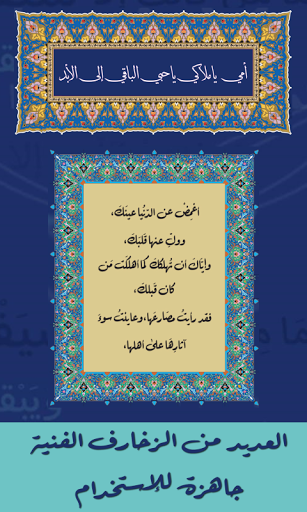 أمي ياملاكي ياحبي الباقي إلى الأبد
أغمِضْ عن الدنيا عينَكَ،
وولِّ عنها قلبَكَ،
وإيّاكَ أن تُهلككَ كما أهلكَت مَن
كان قبلكَ،
فقد رأيتُ مصارعَها، وعاينتُ سوءَ
آثارِها على أهلها،
العديد من الزخارف الفنية
جاهزة للإستخدام